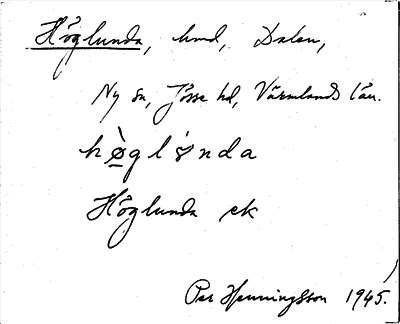 Höglunda, hmd, Dalen,
Ny sn, Jösse hd, Värmlands län.
hø̀glǿnda
Höglunda ek
Per Henningsson 1945.